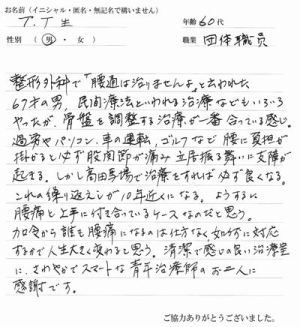 お名前（イニシャル・匿名・無記名で構いません）
T.T 生
年齢 60代
性別（男・女）
職業 団体職員
整形外科で「腰通は治りませんよ」と云われた
67才の男、民間療法といわれる治療などもいろいろ
やったが、骨盤を調整する治療が一番合っている感じ。
過労やパソコン、車の運転、ゴルフなど腰に負担が
掛かると必ず股関節が痛み立居振る舞いに支障が
起きる。しかし高田馬場で治療をすれば必ず良くなる。
これの繰り返えしが10年近くになる。ようするに
腰痛と上手に付き合っているケースなのだと思う。
加令から誰も腰痛になるのは仕方なく如何に対応
するかで人生大きく変わると思う。清潔で感じの良い治療室
に、さわやかでスマートな青年治療師のお二人に
感謝です。
ご協力ありがとうございました。